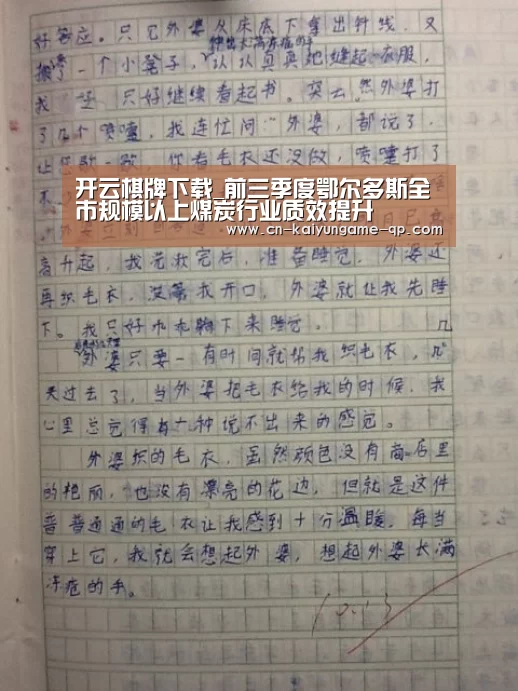 好答应。只见外婆从床底下拿出针线,又
搬了一个小凳子,认认真真地缝起衣服,
我 只好继续看起书。突然外婆打
了几个喷嚏,我连忙问:"外婆,都说了,
让您歇一歇,你看毛衣还没做,喷嚏打了
开云棋牌下载 前三季度鄂尔多斯全
市规模以上煤炭行业质效提升
www.cn-kaiyungame-qp.com
高升起,我洗漱完后,准备睡觉,外婆还
再织毛衣,没等我开口,外婆就让我先睡
下。我只好乖乖躺下来睡觉。
外婆只要一有时间就帮我织毛衣,几
天过去了,当外婆把毛衣给我的时候,我
心里总觉得有一种说不出来的感觉。
外婆织的毛衣,虽然颜色没有商店里
的艳丽,也没有漂亮的花边,但就是这件
普普通通的毛衣让我感到十分温暖,每当
穿上它,我就会想起外婆,想起外婆长满
冻疮的手。
10.13